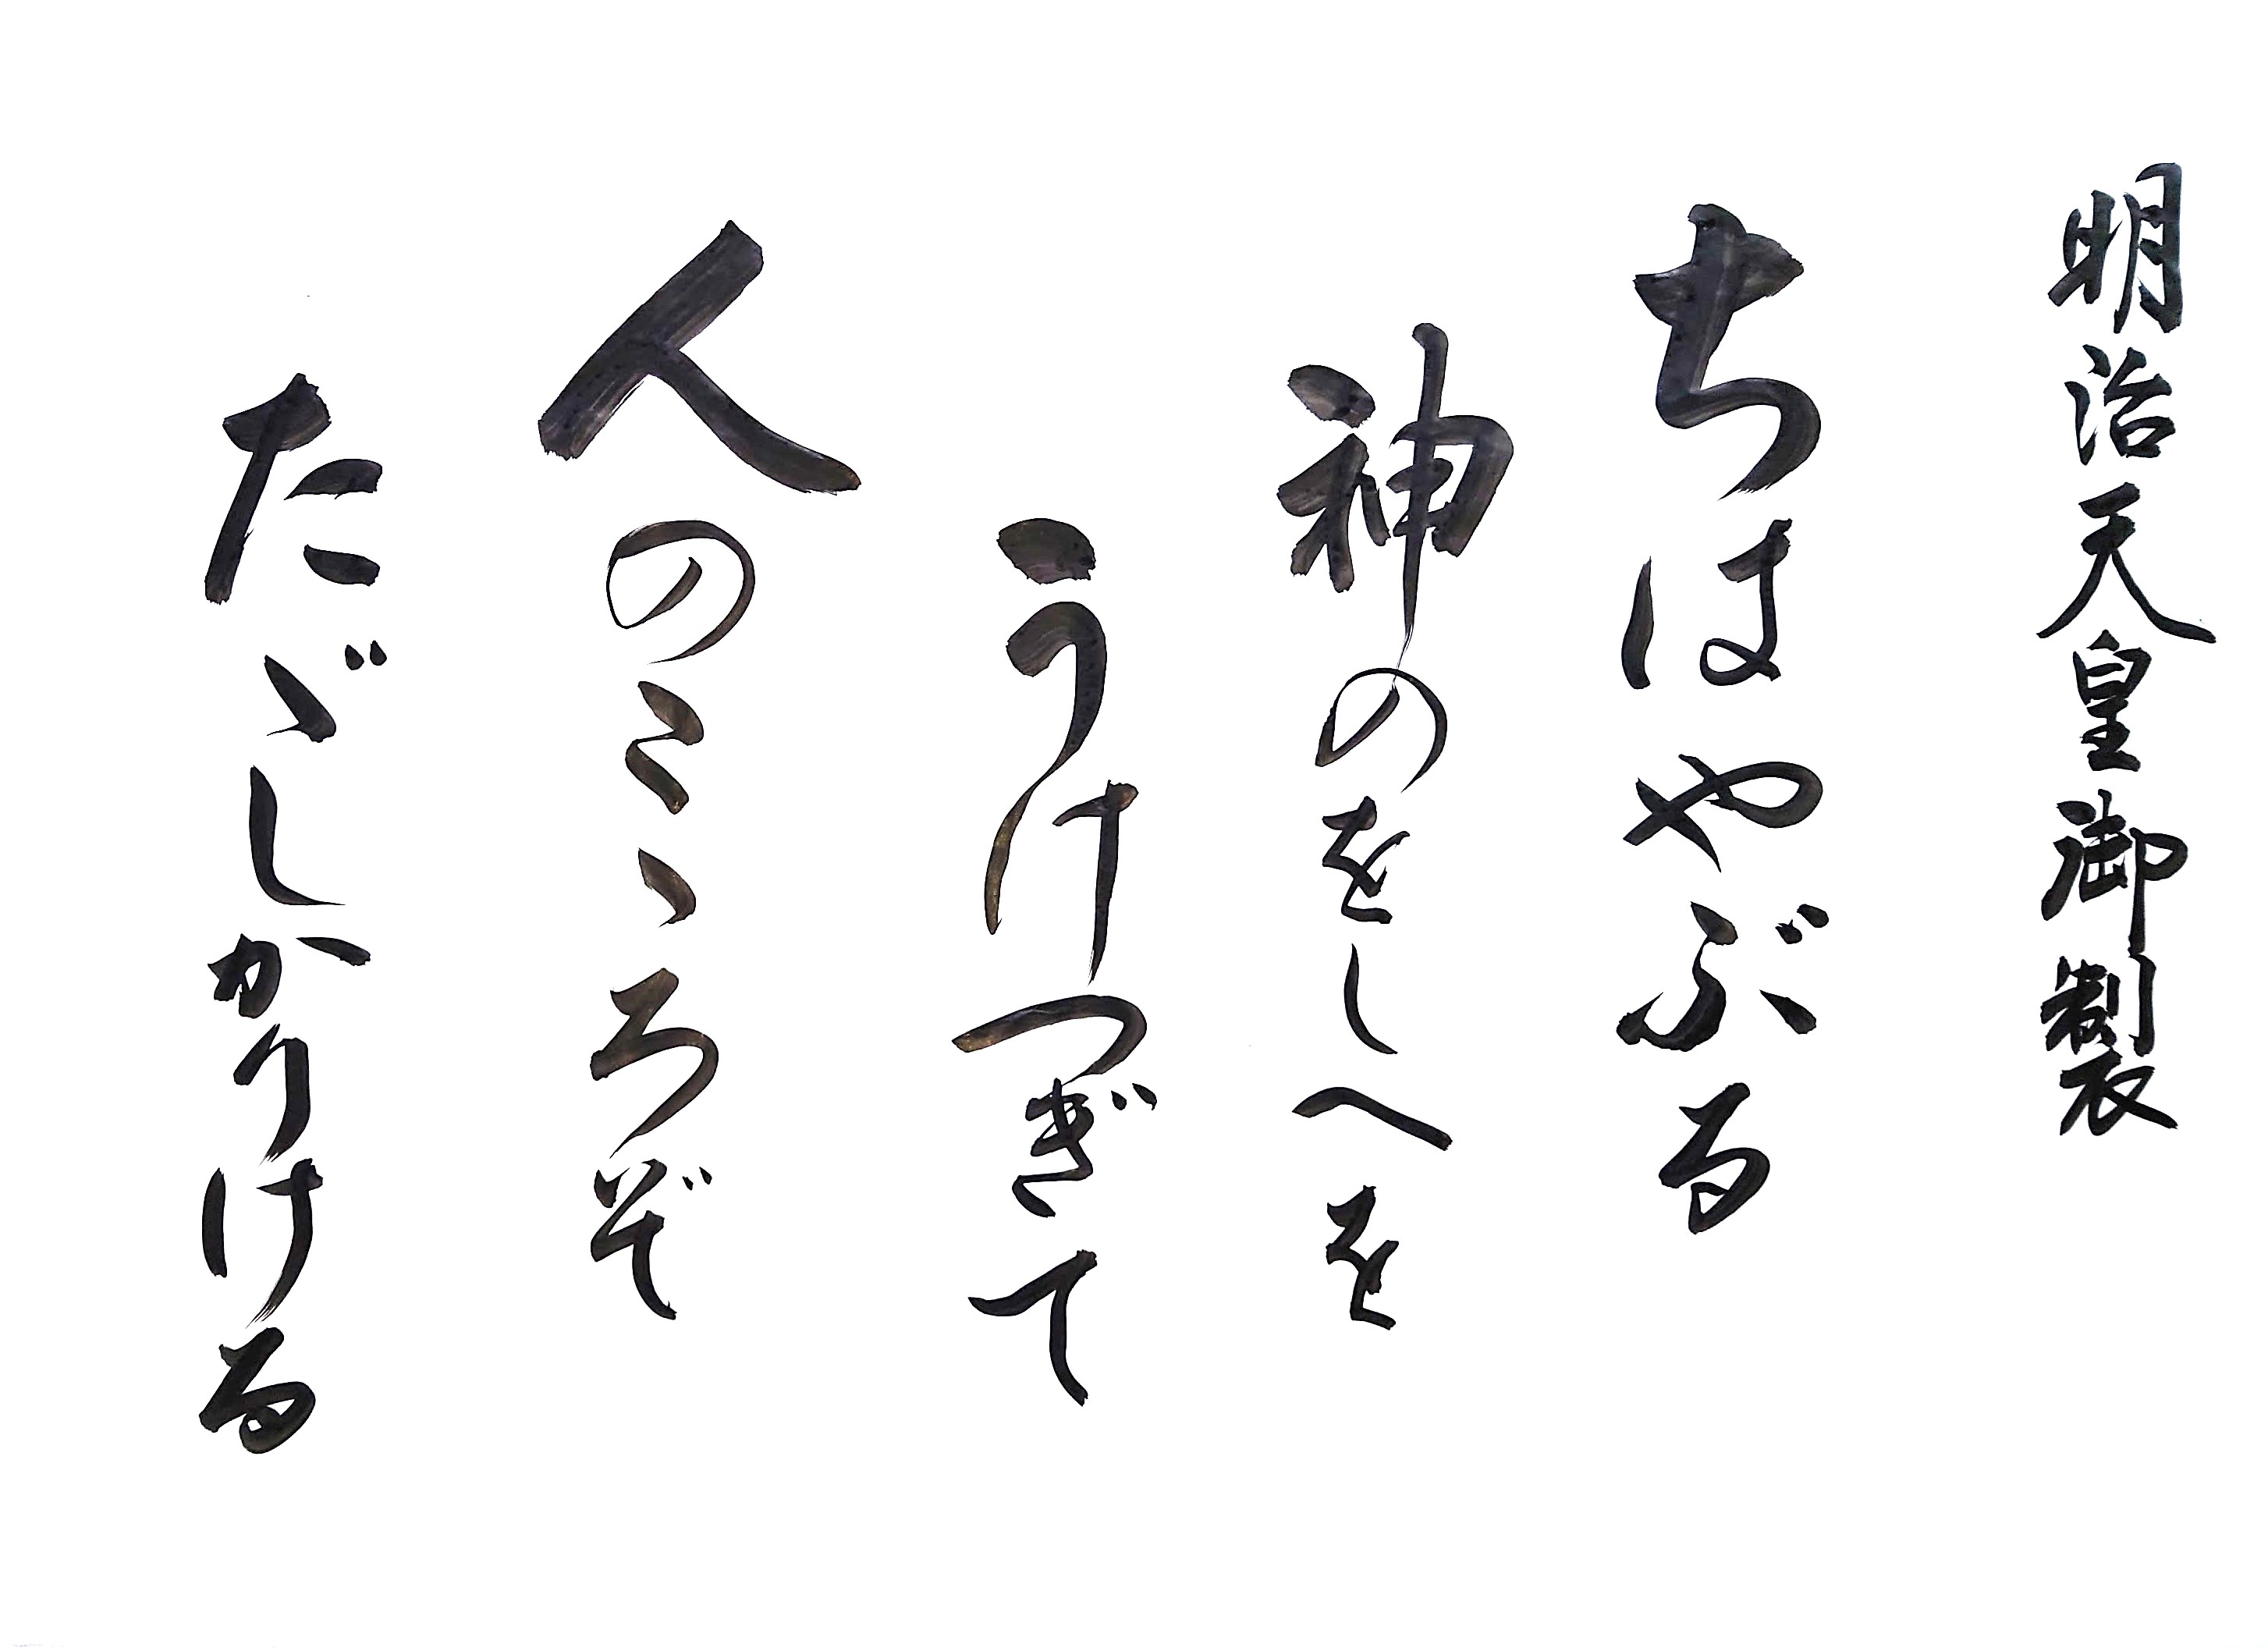 明治天皇御製
ちはやぶる
神のをしへを
うけつぎて
人のこゝろぞ
たゞしかりける